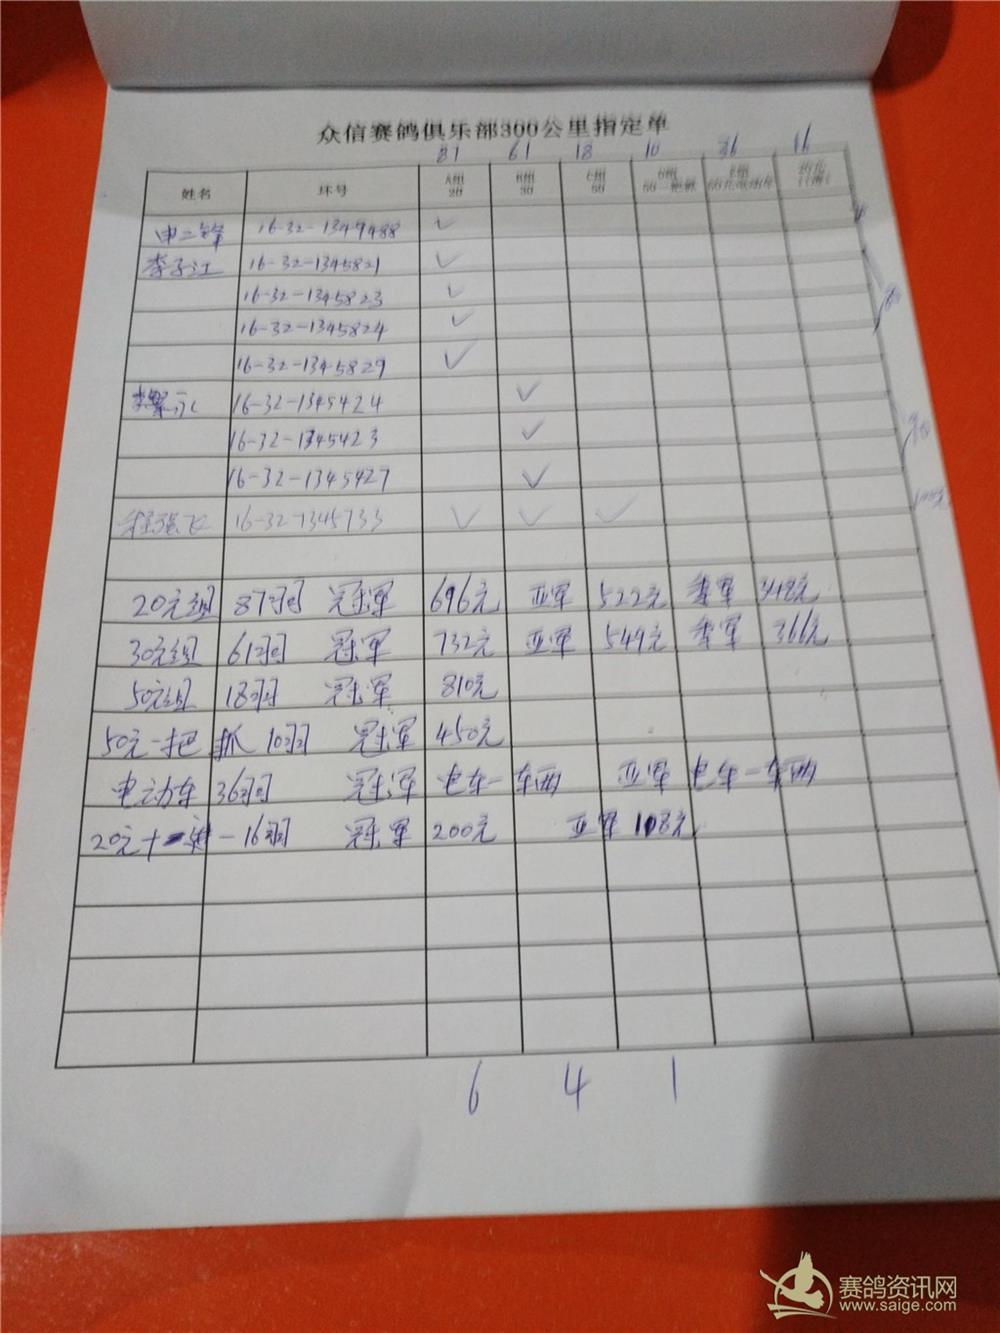 众信赛鸽俱乐部300公里指定单
87 61 18 10 36 16
姓名 环号 A组 20 B组 30 C组 50 D组 50一把抓
申二锋 16-32-1349488 ✓
李子江 16-32-1345821 ✓
16-32-1345823 ✓
16-32-1345824 ✓
16-32-1345829 ✓
16-32-1345424 ✓
16-32-1345423 ✓
16-32-1345427 ✓
程强飞 16-32-1345733 ✓ ✓ ✓
20元组 87羽 冠军 696元 亚军 522元 季军 348元
30元组 61羽 冠军 732元 亚军 549元 季军 366元
50元组 18羽 冠军 810元
50元一把抓 10羽 冠军 450元
电动车 36羽 冠军 电车一车两 亚军 电车一车两
20元十 一16羽 冠军 200元 亚军 108元
6 4 1
赛鸽资讯网
www.saige.com